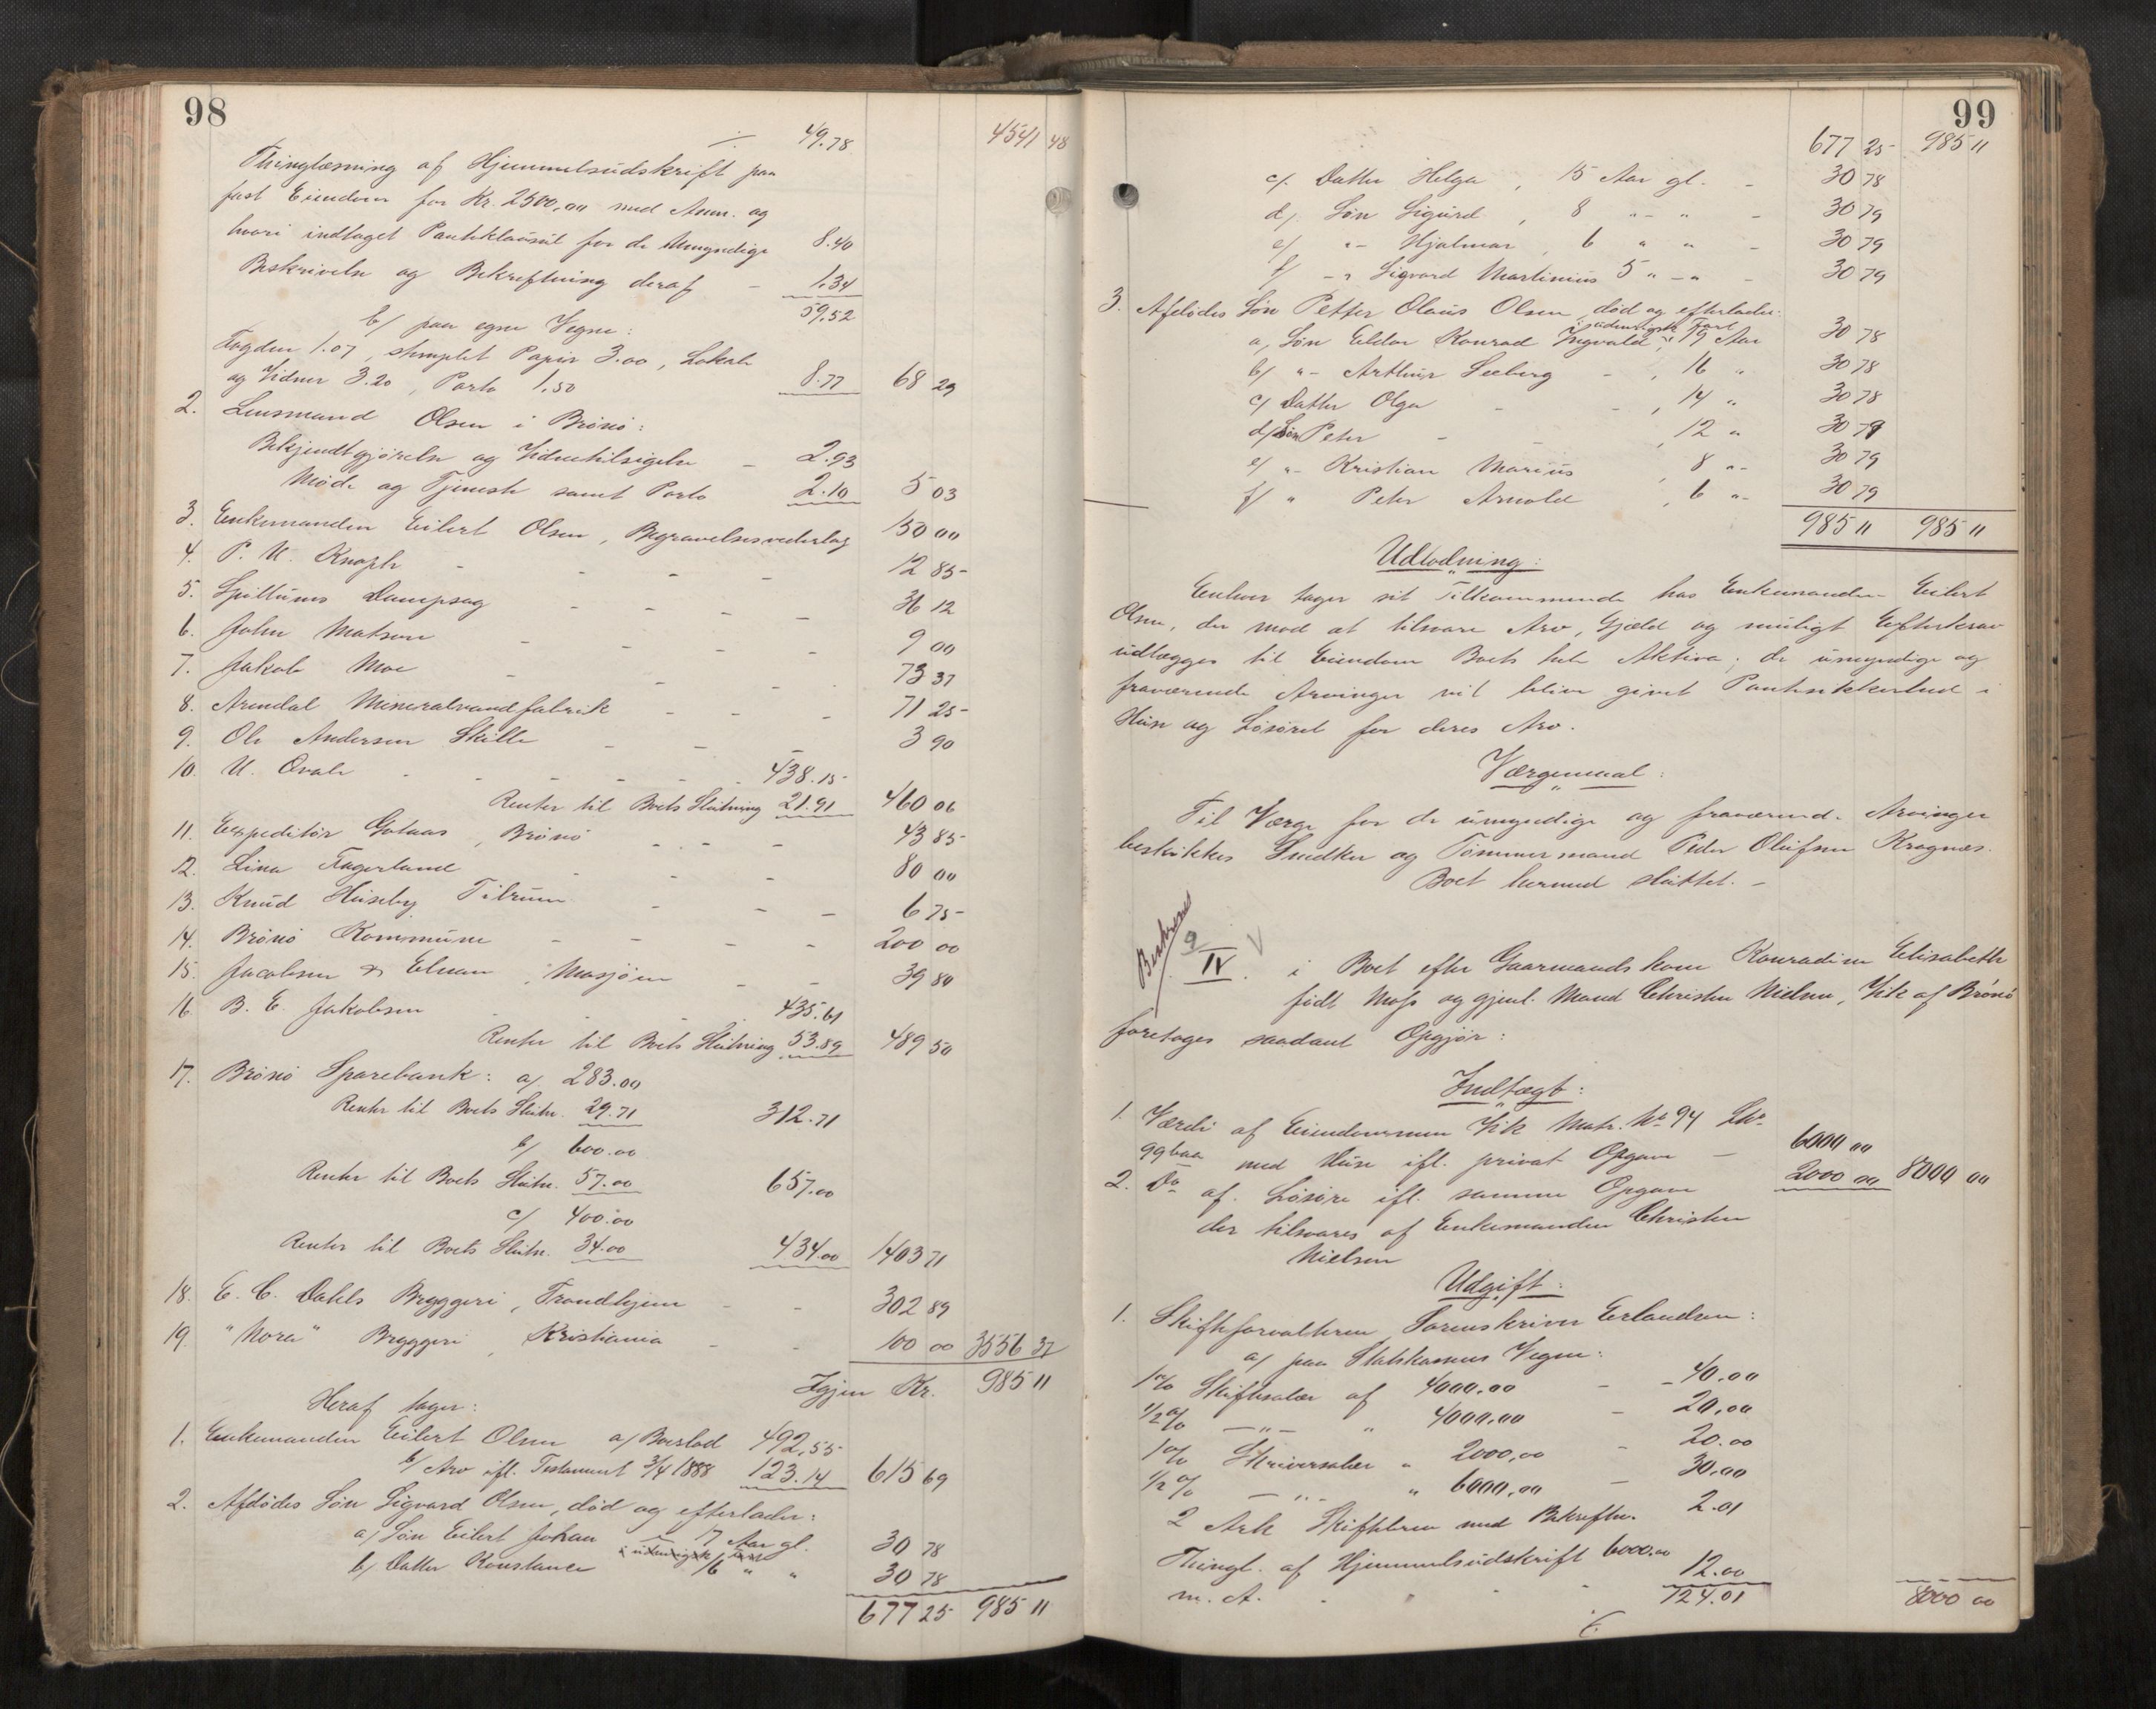 98
./. 49.78 4541 48
Thinglæsning af Hjemmelsudskrift paa
fast Eiendom for Kr. 2500,00 med Anm. og
hvori indtaget Panteklausul for de Umyndige 8.40
Beskrivelse og Bekræftning deraf - 1.34
59,52
b/ paa egne Vegne:
Fogden 1.07, stemplet Papir 3.00, Lokale
og Vidner 3.20, Porto 1,50 8.77 68 29
2. Lensmand Olsen i Brönö:
Bekjendtgjörelse og Vidnetilsigelse - 2.93
Möde og Tjeneste samt Porto 2.10 5 03
3. Enkemanden Eilert Olsen, Begravelsesvederlag 150 00
4. P. U. Knoph - - - - 12 85
5. Spillums Dampsag - - - - 36 12
6. John Matsen - - - - 9 00
7. Jakob Moe - - - - 73 37
8. Arendal Mineralvandfabrik - - - 71 25
9. Ole Andersen Skille - - - 3 90
10. U. Qvale - - - - - 438.15
Renter til Boets Slutning 21.91 460 06
11. Expeditör Gotaas, Brönö - - - 43 85
12. Lina Fagerland - - - 80 00
13. Knud Huseby Tilrum - - - 6 75
14. Brönö Kommune - - - - 200 00
15. Jacobsen & Elnan, Mosjöen - - 39 80
16. B. E. Jakobsen - - - 435.61
Renter til Boets Slutning 53.89 489 50
17. Brönö Sparebank: a/ 283.00
Renter til Boets Slutn. 29.71 312.71
b/ 600.00
Renter til Boets Slutn. 57.00 657.00
c/ 400.00
Renter til Boets Slutn. 34.00 434.00 1403 71
18. E. C. Dahls Bryggeri, Trondhjem - - 302 89
19. "Nora" Bryggeri, Kristiania - - 100 00 3556 37
Igjen Kr. 985 11
Heraf tager:
1. Enkemanden Eilert Olsen a/ Boeslod 492,55
b/ Arv ifl. Testament 3/4 1888 123.14 615 69
2. Afdödes Sön Sigvard Olsen, död og efterlader:
a/ Sön Eilert Johan - 17 Aar gl. 30 78
i udenrigsk Fart
b/ Datter Konstance 16 " " 30 78
677 25 985 11
99
677 25 985 11
c/. Datter Helga, 15 Aar gl. - 30 78
d/. Sön Sigurd, 8 "-" - 30 79
e/ "- Hjalmar, 6 " " - 30 79
f/ -" Sigvard Martinius 5 "-" - 30 79
3. Afdödes Sön Petter Olaus Olsen, död og efterlader:
i udenrigsk Fart
a, Sön Eldor Konrad Ingvald, 19 Aar 30 78
b/ "- Arthur Seeberg - , 16 " 30 78
c/ Datter Olga - - , 14 " 30 78
d/ Sön Peter - - , 12 " 30 79
e/ "- Kristian Marius , 8 "- 30 79
f/ " Peter Arnold , 6 "- 30 79
985 11 985 11
Udlodning:
Enhver tager sit Tilkommende hos Enkemanden Eilert
Olsen, der mod at tilsvare Arv, Gjæld og muligt Efterkrav
udlægges til Eiendom Boets hele Aktiva; de umyndige og
fraværende Arvinger vil blive givet Pantesikkerhed i
Huse og Lösöret for deres Arv.
Værgemaal:
Til Værge for de umyndige og fraværend. Arvinger
beskikkes Snedker og Tömmermand Peder Olufsen Kragnæs.
Boet hermed sluttet. -
Beskreves
9/IV. V i Boet efter Gaarmandskone Konradine Elisabeth
födt Moss og gjenl. Mand Christen Nielsen, Vik af Brönö
foretoges saadant Opgjör:
Indtægt:
1. Værdi af Eiendommen Vik Matr. No 94 Lbo
99baa med Huse ifl. privat Opgave - 6000 00
2. Do af Lösöre ifl. samme Opgave 2000 00 8000 00
der tilsvares af Enkemanden Christen
Nielsen
Udgift:
1. Skifteforvalteren Sorenskriver Erlandsen:
a/ paa Statskassens Vegne:
1% Skiftesalær af 4000.00 - - 40.00
1/2% -"- " 4000.00 - 20.00
1% Skriversalær " 2000,00 - 20.00
1/2% -"- " 6000,00 - 30,00
2 Ark Skiftebrev med Bekræftn. 2.01
Thingl. af Hjemmelsudskrift 6000.00
m. A. - - - 12.00
124.01 8000 00
./.